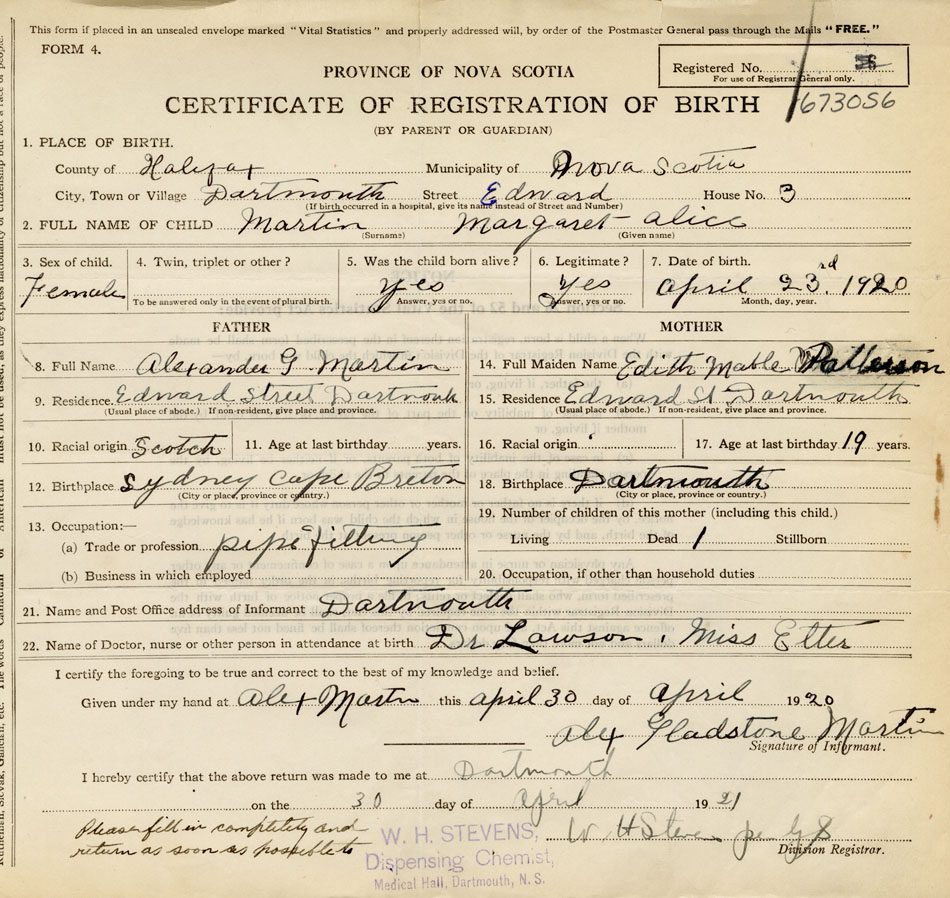 This form if placed in an unsealed envelope marked "Vital Statistics" and properly addressed will, by order of the Postmaster General pass through the Mails "FREE."
FORM 4.
Registered No.
For use of Registrar General only.
PROVINCE OF NOVA SCOTIA
CERTIFICATE OF REGISTRATION OF BIRTH
1673056
(BY PARENT OR GUARDIAN)
1. PLACE OF BIRTH.
County of Halifax Municipality of Nova Scotia
City, Town or Village Dartmouth Street Edward House No. 3
(If birth occurred in a hospital, give its name instead of Street and Number)
2. FULL NAME OF CHILD Martin Margaret Alice
(Surname) (Given name)
3. Sex of child. 4. Twin, triplet or other? 5. Was the child born alive? 6. Legitimate? 7. Date of birth.
Female yes Yes April 23rd 1920
To be answered only in the event of plural birth. Answer, yes or no. Answer, yes or no. Month, day, year.
FATHER MOTHER
8. Full Name Alexander G Martin 14. Full Maiden Name Edith Mable Patterson
9. Residence Edward Street Dartmouth 15. Residence Edward St Dartmouth
(Usual place of abode.) If non-resident, give place and province. (Usual place of abode.) If non-resident, give place and province.
10. Racial origin Scotch 11. Age at last birthday years. 16. Racial origin 17. Age at last birthday 19 years.
12. Birthplace Sydney Cape Breton 18. Birthplace Dartmouth
(City or place, province or country.) (City or place, province or country.)
13. Occupation:— 19. Number of children of this mother (including this child.)
(a) Trade or profession pipe fitting Living Dead 1 Stillborn
(b) Business in which employed 20. Occupation, if other than household duties
21. Name and Post Office address of Informant Dartmouth
22. Name of Doctor, nurse or other person in attendance at birth Dr Lawson, Miss Etter
I certify the foregoing to be true and correct to the best of my knowledge and belief.
Given under my hand at Alex Martin this april 30 day of april 1920
Alex Gladstone Martin
Signature of Informant.
I hereby certify that the above return was made to me at Dartmouth
on the 30 day of April 1921
Please fill in completely and
return as soon as possible to
W. H. STEVENS,
Dispensing Chemist,
Medical Hall, Dartmouth, N. S.
W H Stevens per
Division Registrar.